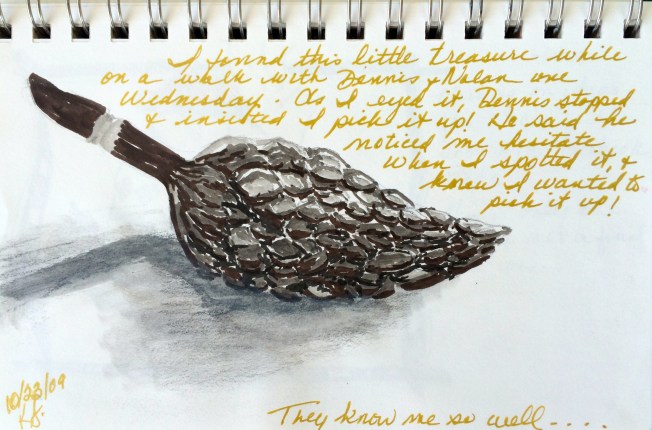 I found this little treasure while
on a walk with Dennis & Nolan one
Wednesday. As I eyed it, Dennis stopped
& insisted I pick it up! He said he
noticed me hesitate
when I spotted it, &
knew I wanted to
pick it up!
10/23/09
They know me so well....